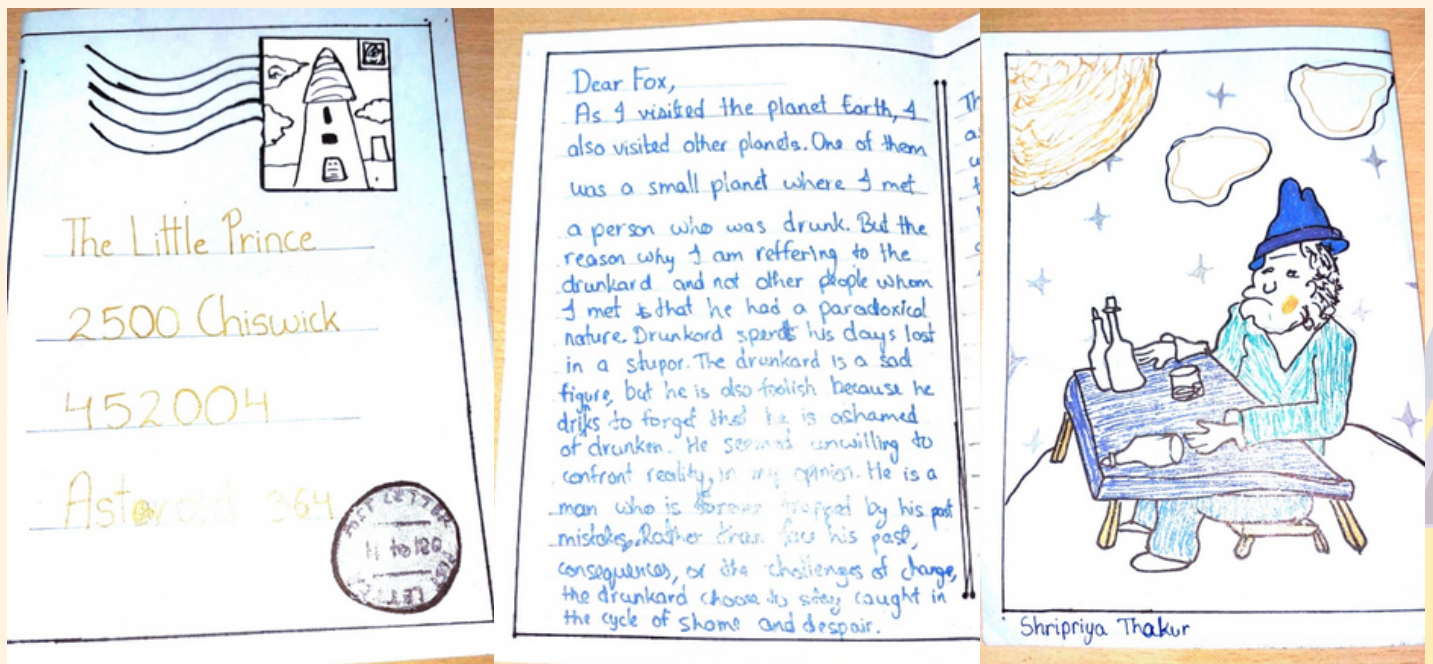 The Little Prince
2500 Chiswick
452004
Asteroid 364
Dear Fox,
As I visited the planet Earth, I
also visited other planets. One of them
was a small planet where I met
a person who was drunk. But the
reason why I am reffering to the
drunkard and not other people whom
I met is that he had a paradoxical
nature. Drunkard spends his days lost
in a stupor. The drunkard is a sad
figure, but he is also foolish because he
drinks to forget that he is ashamed
of drunken. He seemed unwilling to
confront reality, in my opinion. He is a
man who is forever trapped by his past
mistakes. Rather than face his past,
consequences, or the challenges of change,
the drunkard choose to stay caught in
the cycle of shame and despair.
Shripriya Thakur